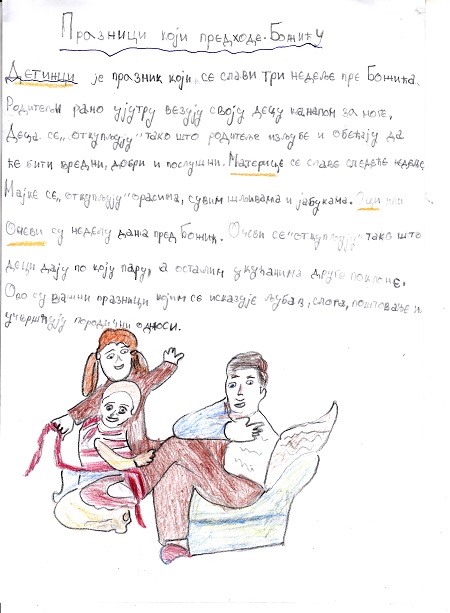 Празници који предходе Божићу
Детинци је празник који се слави три недеље пре Божића.
Родитељи рано ујутру везују своју децу канапом за ноге.
Деца се „откупљују" тако што родитеље изљубе и обећају да
ће бити вредни, добри и послушни. Материце се славе следеће недеље.
Мајке се „откупљују" орасима, сувим шљивама и јабукама. Оци или
Очеви су недељу дана пред Божић. Очеви се "откупљују" тако што
деци дају по коју пару, а осталим укућанима друге поклоне.
Ово су важни празници којим се исказује љубав, слога, поштовање и
учвршћују породични односи.